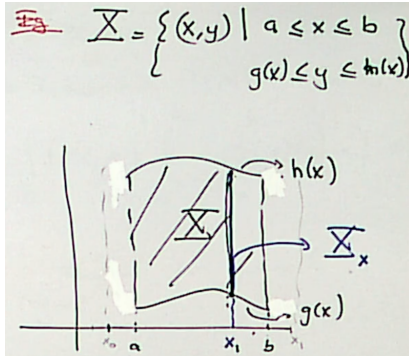 Eg X = { (x,y) | a ≤ x ≤ b
g(x) ≤ y ≤ h(x) }
h(x)
X
X_x
g(x)
x₀ a x₁ b x₁